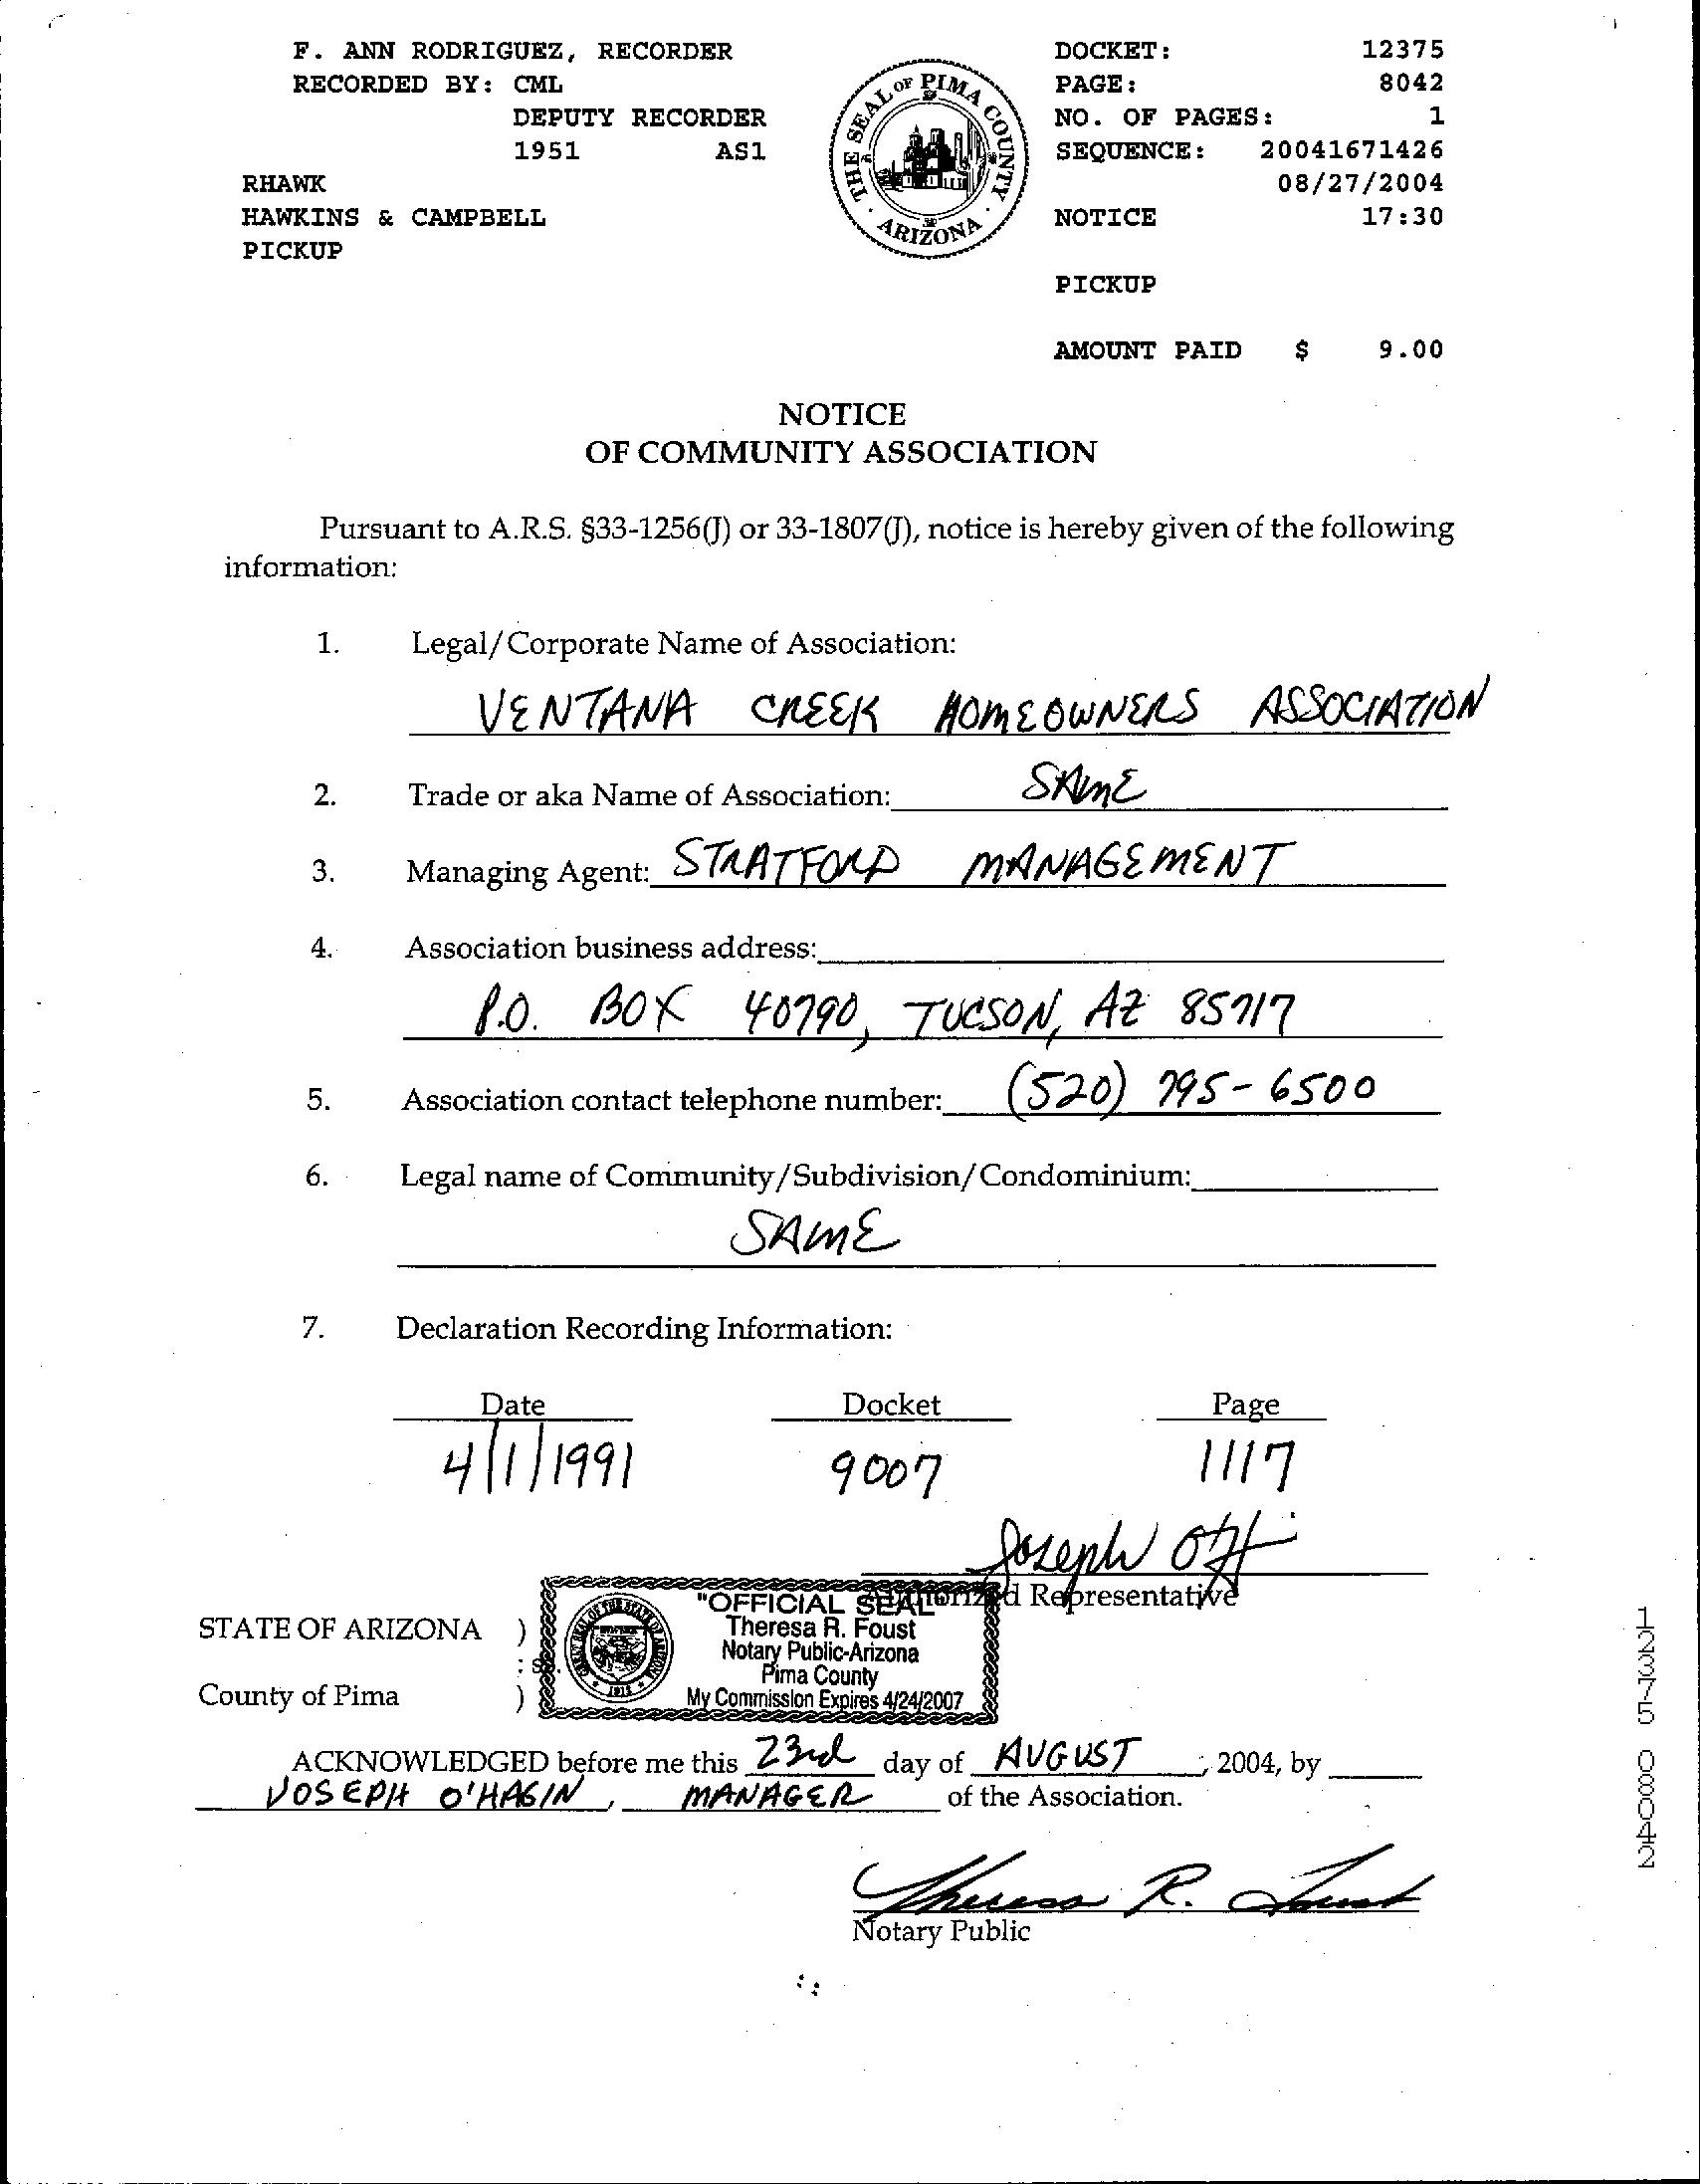 F. ANN RODRIGUEZ, RECORDER
RECORDED BY: CML
DEPUTY RECORDER
1951 AS1
RHAWK
HAWKINS & CAMPBELL
PICKUP
THE SEAL OF PIMA COUNTY
ARIZONA
DOCKET: 12375
PAGE: 8042
NO. OF PAGES: 1
SEQUENCE: 20041671426
08/27/2004
NOTICE 17:30
PICKUP
AMOUNT PAID $ 9.00
NOTICE
OF COMMUNITY ASSOCIATION
Pursuant to A.R.S. §33-1256(J) or 33-1807(J), notice is hereby given of the following
information:
1. Legal/Corporate Name of Association:
VENTANA CREEK HOMEOWNERS ASSOCIATION
2. Trade or aka Name of Association: SAME
3. Managing Agent: STRATFORD MANAGEMENT
4. Association business address:
P.O. BOX 40790, TUCSON, AZ 85717
5. Association contact telephone number: (520) 795-6500
6. Legal name of Community/Subdivision/Condominium:
SAME
7. Declaration Recording Information:
Date Docket Page
4/1/1991 9007 1117
Joseph O'H
Authorized Representative
"OFFICIAL SEAL"
Theresa R. Foust
Notary Public-Arizona
Pima County
My Commission Expires 4/24/2007
GREAT SEAL OF THE STATE OF ARIZONA
1912
STATE OF ARIZONA )
: ss.
County of Pima )
ACKNOWLEDGED before me this 23rd day of AUGUST, 2004, by
JOSEPH O'HAGIN, MANAGER of the Association.
Theresa R. Foust
Notary Public
12375 08042